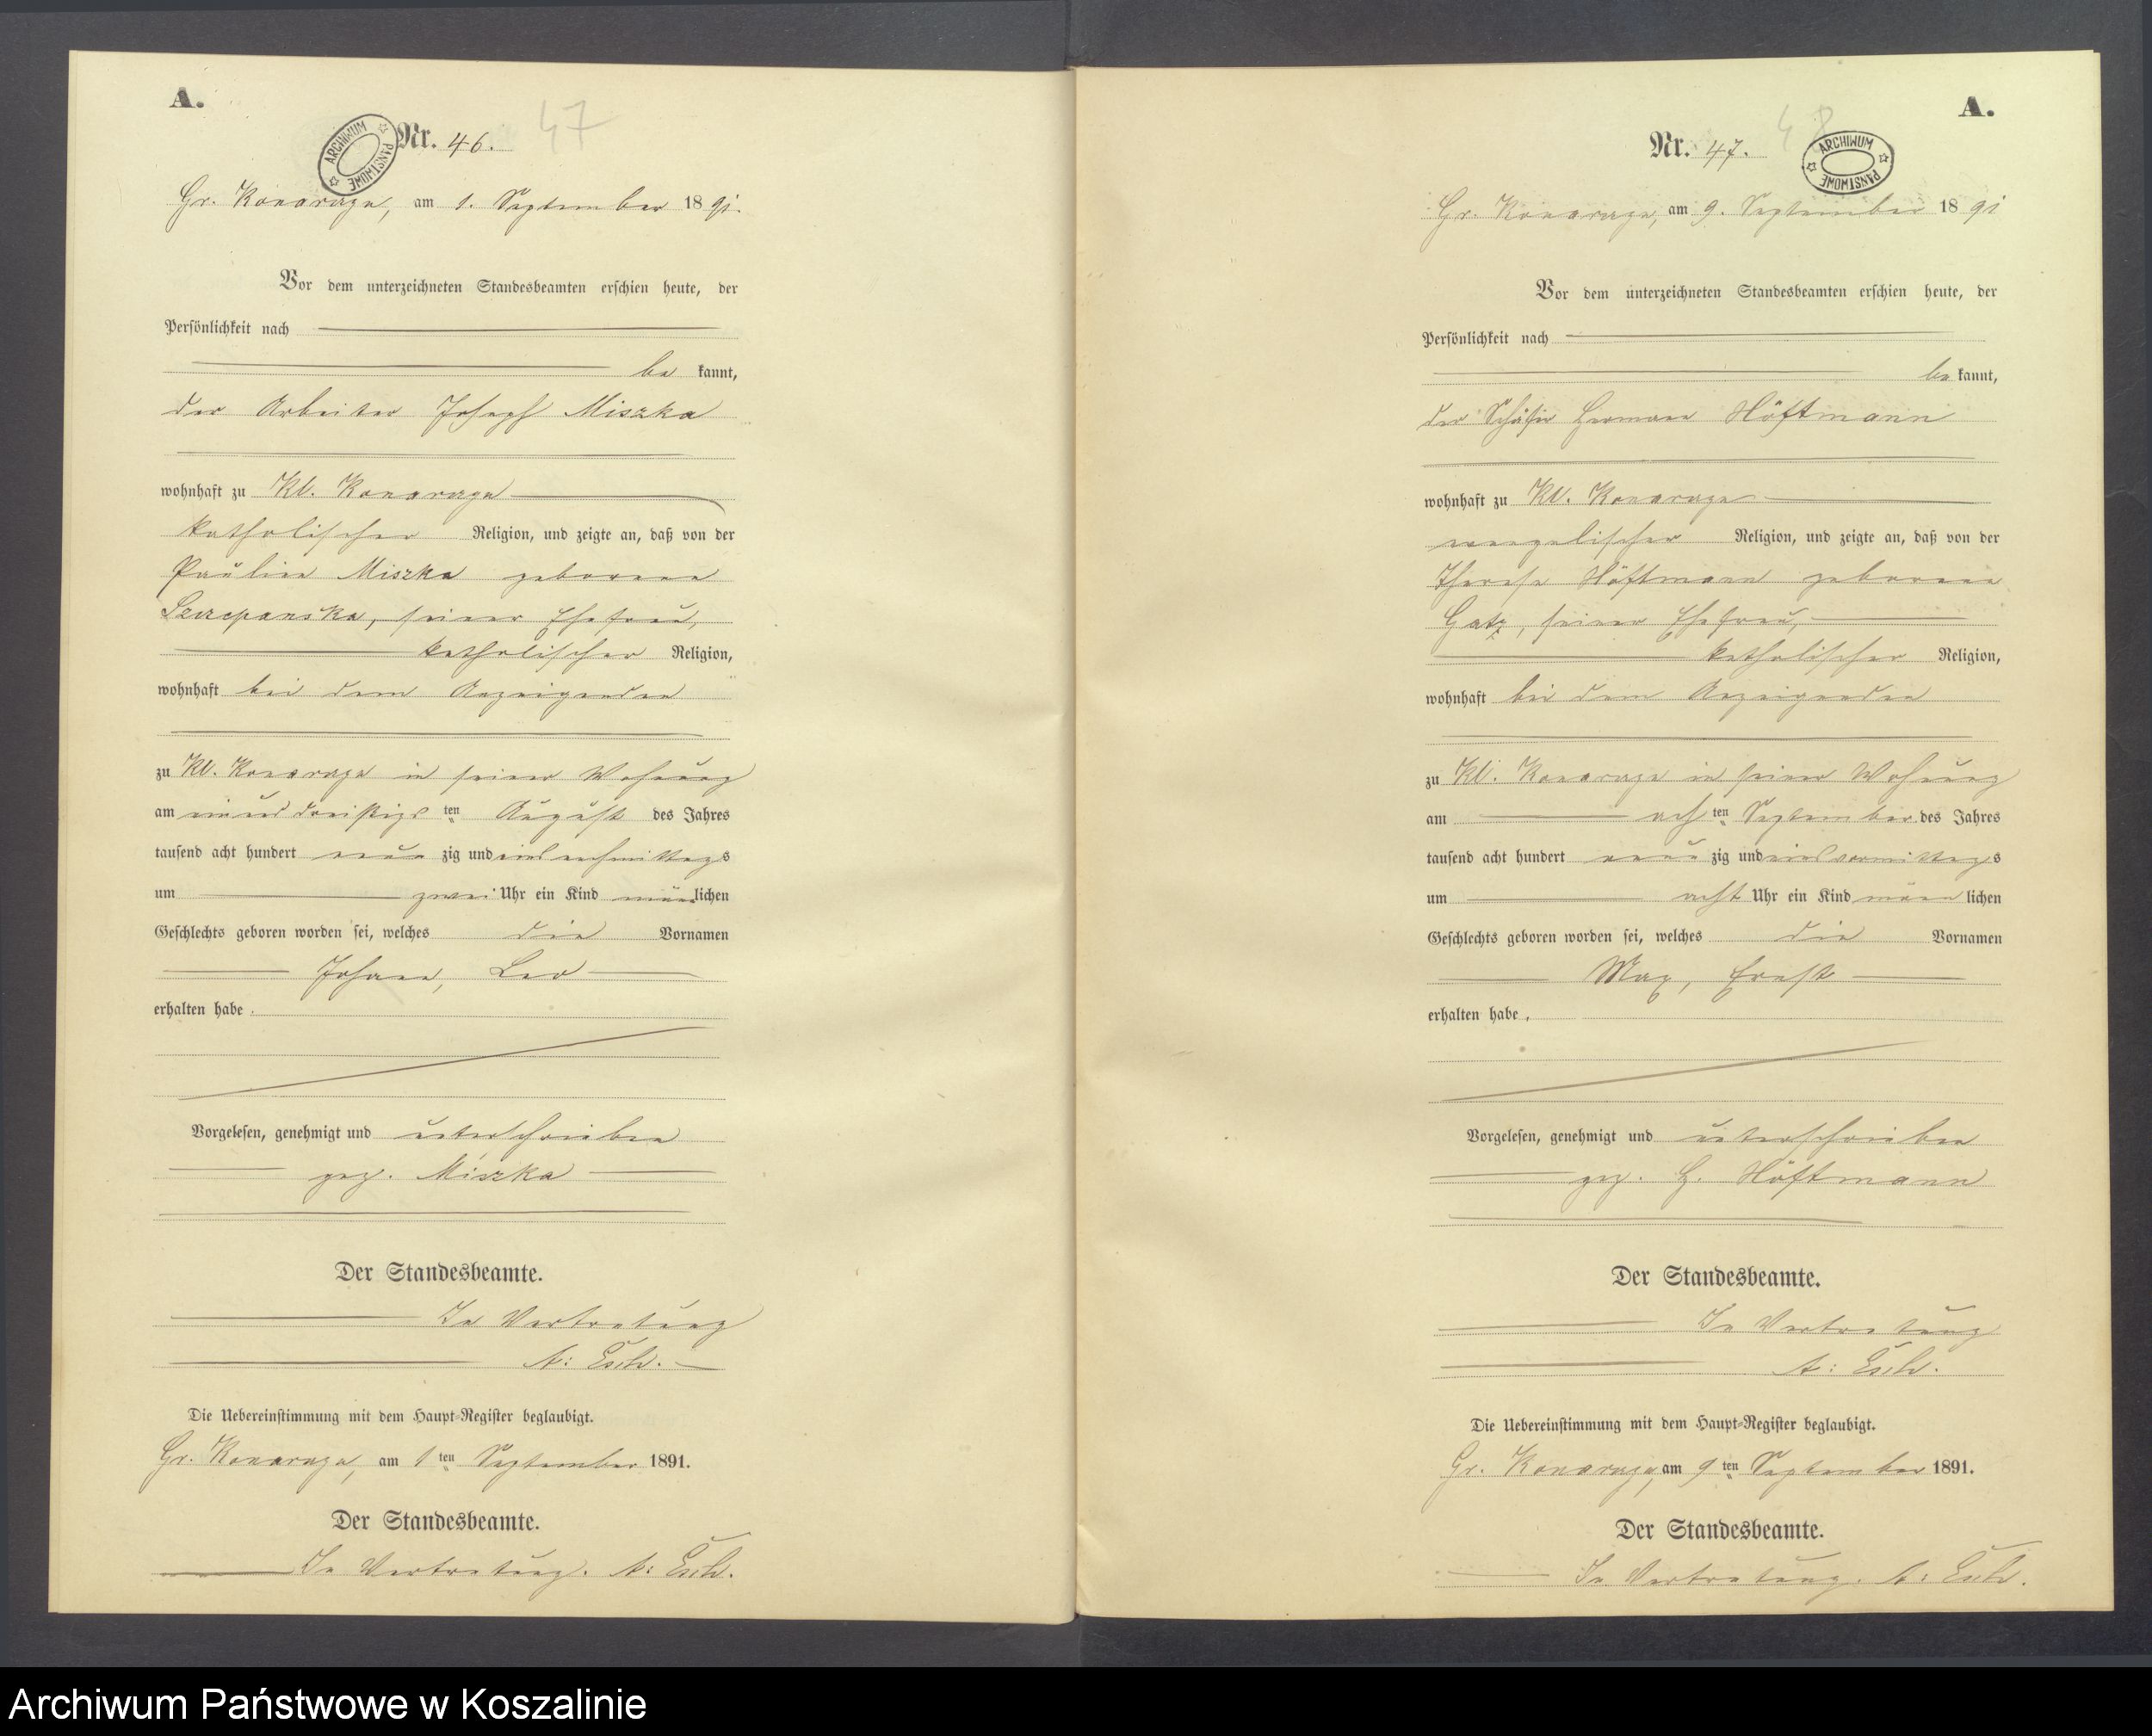 A.
Nr. 46.
47
ARCHIWUM PAŃSTWOWE
Gr. Konarzyn, am 1. September 1891.
Vor dem unterzeichneten Standesbeamten erschien heute, der
Persönlichkeit nach
be kannt,
der Arbeiter Joseph Miszka
wohnhaft zu Kl. Konarzyn
katholischer Religion, und zeigte an, daß von der
Pauline Miszka geborene
Szczepanska, seiner Ehefrau,
katholischer Religion,
wohnhaft bei dem Anzeigenden
zu Kl. Konarzyn in seiner Wohnung
am einunddreißigsten August des Jahres
tausend acht hundert neun zig und eins nachmittags
um zwei Uhr ein Kind männlichen
Geschlechts geboren worden sei, welches die Vornamen
Johann, Leo
erhalten habe.
Vorgelesen, genehmigt und unterschrieben
gez. Miszka
Der Standesbeamte.
In Vertretung
A:
Die Uebereinstimmung mit dem Haupt-Register beglaubigt.
Gr. Konarzyn, am 1ten September 1891.
Der Standesbeamte.
In Vertretung. A:
A.
Nr. 47.
48
ARCHIWUM PAŃSTWOWE
Gr. Konarzyn, am 9. September 1891
Vor dem unterzeichneten Standesbeamten erschien heute, der
Persönlichkeit nach
be kannt,
der Schäfer Herman Höftmann
wohnhaft zu Kl. Konarzyn
evangelischer Religion, und zeigte an, daß von der
Therese Höftmann geborene
Gatz, seiner Ehefrau,
katholischer Religion,
wohnhaft bei dem Anzeigenden
zu Kl. Konarzyn in seiner Wohnung
am achten September des Jahres
tausend acht hundert neun zig und eins vormittags
um acht Uhr ein Kind männlichen
Geschlechts geboren worden sei, welches die Vornamen
Max, Ernst
erhalten habe.
Vorgelesen, genehmigt und unterschrieben
gez. H. Höftmann
Der Standesbeamte.
In Vertretung
A:
Die Uebereinstimmung mit dem Haupt-Register beglaubigt.
Gr. Konarzyn, am 9ten September 1891.
Der Standesbeamte.
In Vertretung. A:
Archiwum Państwowe w Koszalinie